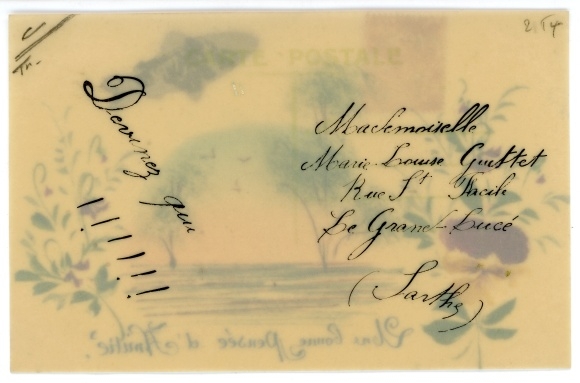 CARTE POSTALE
Devinez qui
!!!!!!!
Mademoiselle
Marie-Louise Guittet
Rue St Facile
Le Grand-Lucé
(Sarthe)
Une bonne Pensée d'Amitié